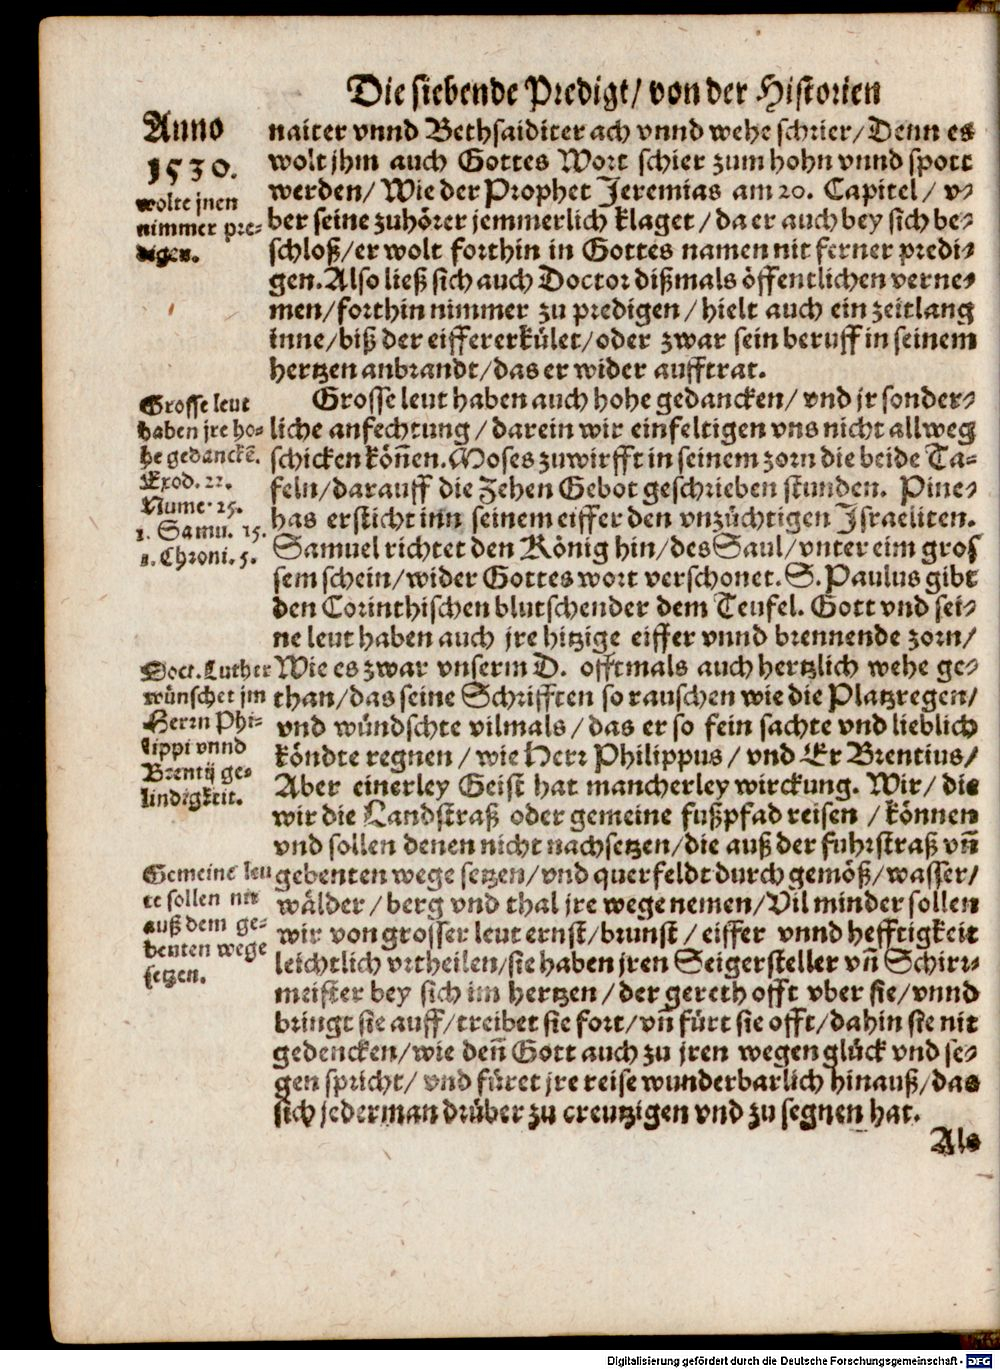 Die siebende Predigt/ von der Historien
Anno
1530.
wolte jnen
nimmer pre-
digen.
naiter vnnd Bethsaiditer ach vnnd wehe schrier/ Denn es
wolt jhm auch Gottes Wort schier zum hohn vnnd spott
werden/ Wie der Prophet Jeremias am 20. Capitel/ v-
ber seine zuhörer jemmerlich klaget/ da er auch bey sich be-
schloß/ er wolt forthin in Gottes namen nit ferner predi-
gen. Also ließ sich auch Doctor dißmals öffentlichen verne-
men/ forthin nimmer zu predigen/ hielt auch ein zeitlang
inne/ biß der eiffer erkület/ oder zwar sein beruff in seinem
hertzen anbrandt/ das er wider aufftrat.
Grosse leut
haben jre ho-
he gedanckē.
Exod. 22.
Nume. 25.
1. Samu. 15.
1. Chroni. 5.
Grosse leut haben auch hohe gedancken/ vnd jr sonder-
liche anfechtung/ darein wir einfeltigen vns nicht allweg
schicken köñen. Moses zuwirfft in seinem zorn die beide Ta-
feln/ darauff die Zehen Gebot geschrieben stunden. Pine-
has ersticht inn seinem eiffer den vnzüchtigen Israeliten.
Samuel richtet den König hin/ des Saul/ vnter eim gros
sem schein/ wider Gottes wort verschonet. S. Paulus gibt
den Corinthischen blutschender dem Teufel. Gott vnd sei-
ne leut haben auch jre hitzige eiffer vnnd brennende zorn/
Doct. Luther
wünschet jm
Herrn Phi-
lippi vnnd
Brentij ge-
lindigkeit.
Wie es zwar vnserm D. offtmals auch hertzlich wehe ge-
than/ das seine Schrifften so rauschen wie die Platzregen/
vnd wündschte vilmals/ das er so fein sachte vnd lieblich
köndte regnen/ wie Herr Philippus/ vnd Er Brentius/
Aber einerley Geist hat mancherley wirckung. Wir/ die
wir die Landstraß oder gemeine fußpfad reisen/ können
vnd sollen denen nicht nachsetzen/ die auß der fuhrstraß vñ
Gemeine leu
te sollen nit
auß dem ge-
benten wege
setzen.
gebenten wege setzen/ vnd querfeldt durch gemöß/ wasser/
wälder/ berg vnd thal jre wege nemen/ Vil minder sollen
wir von grosser leut ernst/ brunst/ eiffer vnnd hefftigkeit
leichtlich vrtheilen/ sie haben jren Seigersteller vñ Schirr-
meister bey sich im hertzen/ der gereth offt vber sie/ vnnd
bringt sie auff/ treibet sie fort/ vñ fürt sie offt/ dahin sie nit
gedencken/ wie deñ Gott auch zu jren wegen glück vnd se-
gen spricht/ vnd füret jre reise wunderbarlich hinauß/ das
sich jederman drüber zu creutzigen vnd zu segnen hat.
Als
Digitalisierung gefördert durch die Deutsche Forschungsgemeinschaft - DFG